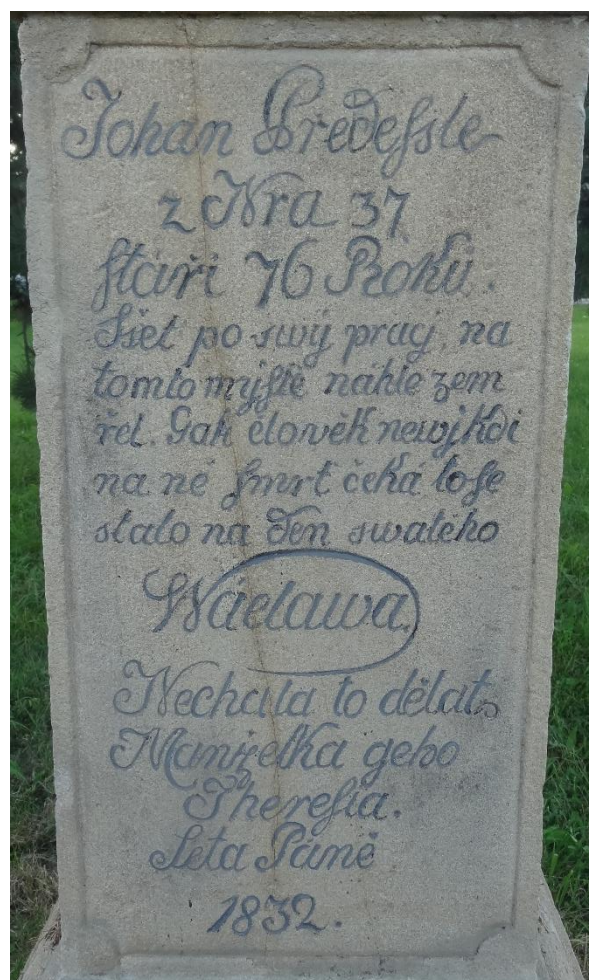 Johan Předeſsle
z Nra 37
ſtáři 76 Roků.
Sſel po swý pracy, na
tomto myſtě náhle zem
řel. Gak člowěk newj kdi
na ně ſmrt čeká toſe
stalo na Den swatého
Wáclawa.
Nechala to dělat
Manželka geho
Thereſia.
Leta Páně
1832.